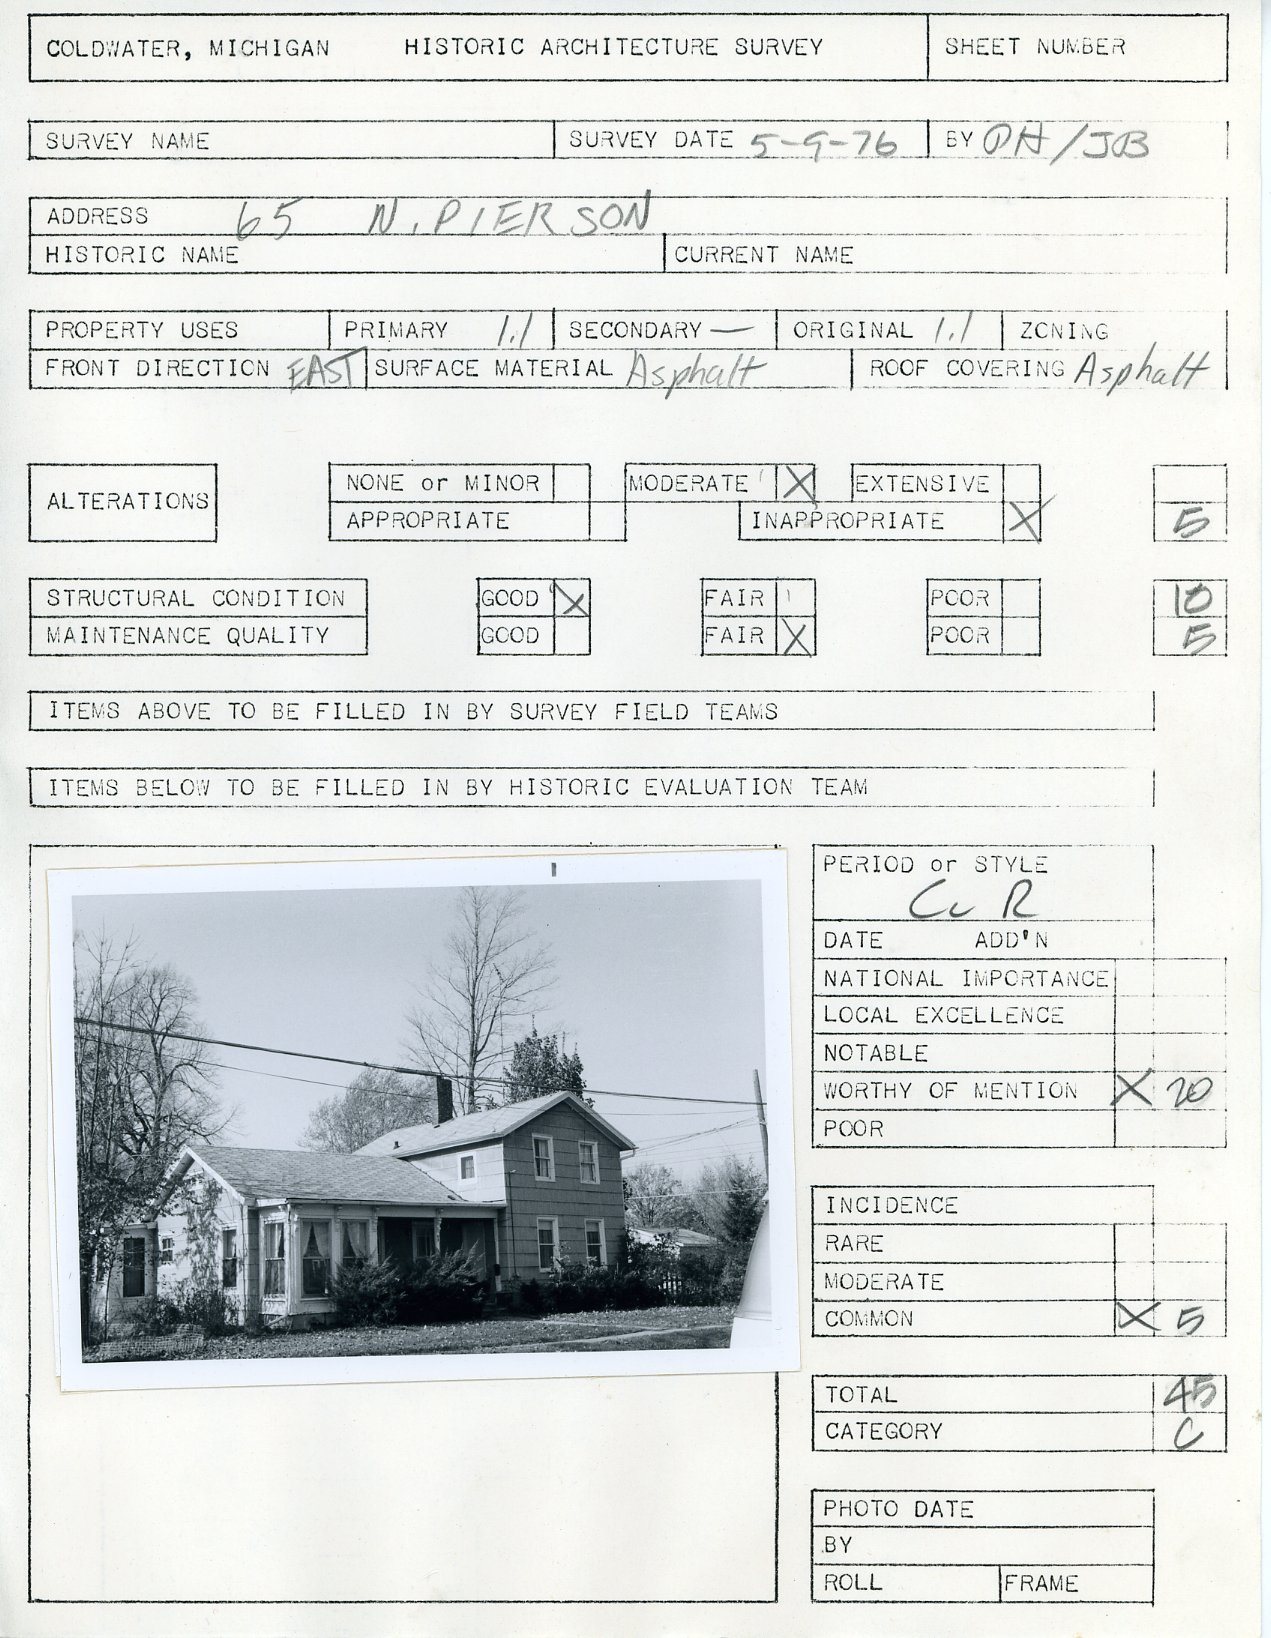 COLDWATER, MICHIGAN HISTORIC ARCHITECTURE SURVEY SHEET NUMBER
SURVEY NAME SURVEY DATE 5-9-76 BY PH/JB
ADDRESS 65 N. PIERSON
HISTORIC NAME CURRENT NAME
PROPERTY USES PRIMARY 1.1 SECONDARY — ORIGINAL 1.1 ZONING
FRONT DIRECTION EAST SURFACE MATERIAL Asphalt ROOF COVERING Asphalt
ALTERATIONS
NONE or MINOR MODERATE X EXTENSIVE
APPROPRIATE INAPPROPRIATE X 5
STRUCTURAL CONDITION GOOD X FAIR POOR 10
MAINTENANCE QUALITY GOOD FAIR X POOR 5
ITEMS ABOVE TO BE FILLED IN BY SURVEY FIELD TEAMS
ITEMS BELOW TO BE FILLED IN BY HISTORIC EVALUATION TEAM
PERIOD or STYLE
R
DATE ADD'N
NATIONAL IMPORTANCE
LOCAL EXCELLENCE
NOTABLE
WORTHY OF MENTION X 20
POOR
INCIDENCE
RARE
MODERATE
COMMON X 5
TOTAL 45
CATEGORY C
PHOTO DATE
BY
ROLL FRAME